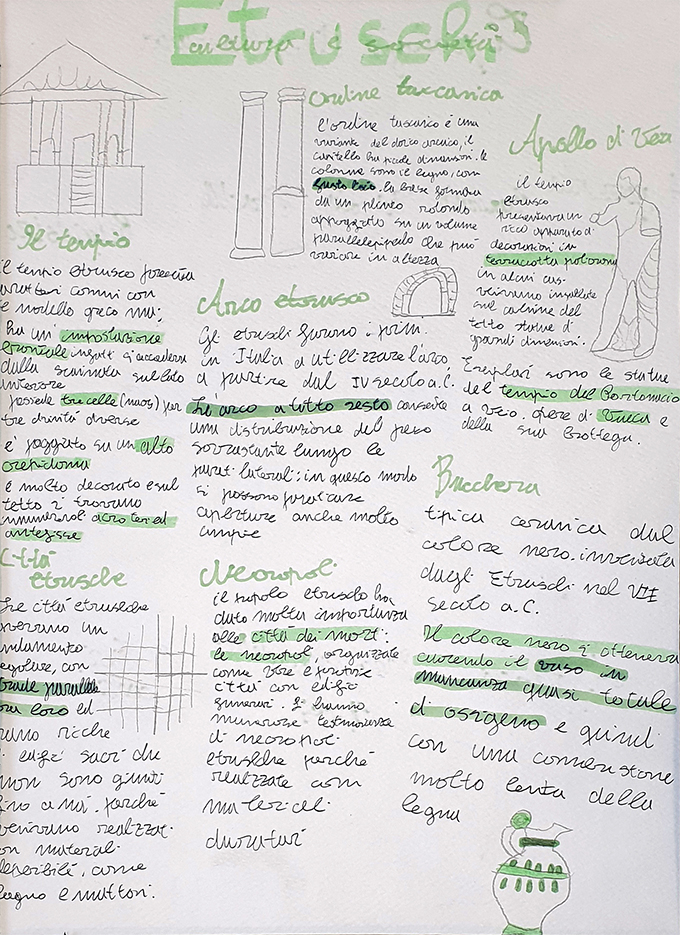 Etruschi
cultura e società
Il tempio
il tempio etrusco presenta
caratteri comuni con
il modello greco ma:
ha un' impostazione
frontale infatti si accedeva
dalla scalinata sul lato
inferiore
possede tre celle (naos) per
tre divinità diverse
è poggiato su un alto
crepidoma
è molto decorato e sul
tetto si trovano
innumerevoli acroteri ed
antefisse
Ordine tuscanico
l'ordine tuscanico è una
variante del dorico arcaico, il
capitello ha piccole dimensioni. le
colonne sono il legno, con
fusto liscio. la base formata
da un plinto rotondo
appoggiato su un volume
parallelepipedo che può
variare in altezza
Apollo di Veio
il tempio
etrusco
presentava un
ricco apparato di
decorazioni in
terracotta policroma
in alcuni casi
venivano installate
sul culmine del
tetto statue di
grandi dimensioni.
Esemplari sono le statue
del tempio del Portonaccio
a Veio. opere di Vulca e
della sua bottega.
Arco etrusco
Gli etruschi furono i primi
in Italia a utilizzare l'arco,
a partire dal IV secolo a.C.
L'arco a tutto sesto consente
una distribuzione del peso
sovrastante lungo le
pareti laterali: in questo modo
si possono praticare
aperture anche molto
ampie
Bucchero
tipica ceramica dal
colore nero. inventata
dagli Etruschi nel VII
secolo a.C.
Il colore nero si otteneva
cuocendo il vaso in
mancanza quasi totale
di ossigeno e quindi
con una combustione
molto lenta della
legna
Città
etrusche
Le città etrusche
avevano un
andamento
regolare, con
strade parallele
tra loro ed
erano ricche
di edifici sacri che
non sono giunti
fino a noi. perché
venivano realizzati
con materiali
deperibili, come
legno e mattoni.
Necropoli
il popolo etrusco ha
dato molta importanza
alle città dei morti:
le necropoli, organizzate
come vere e proprie
città con edifici
funerari. Si hanno
numerose testimonianze
di necropoli
etrusche perché
realizzate con
materiali
duraturi